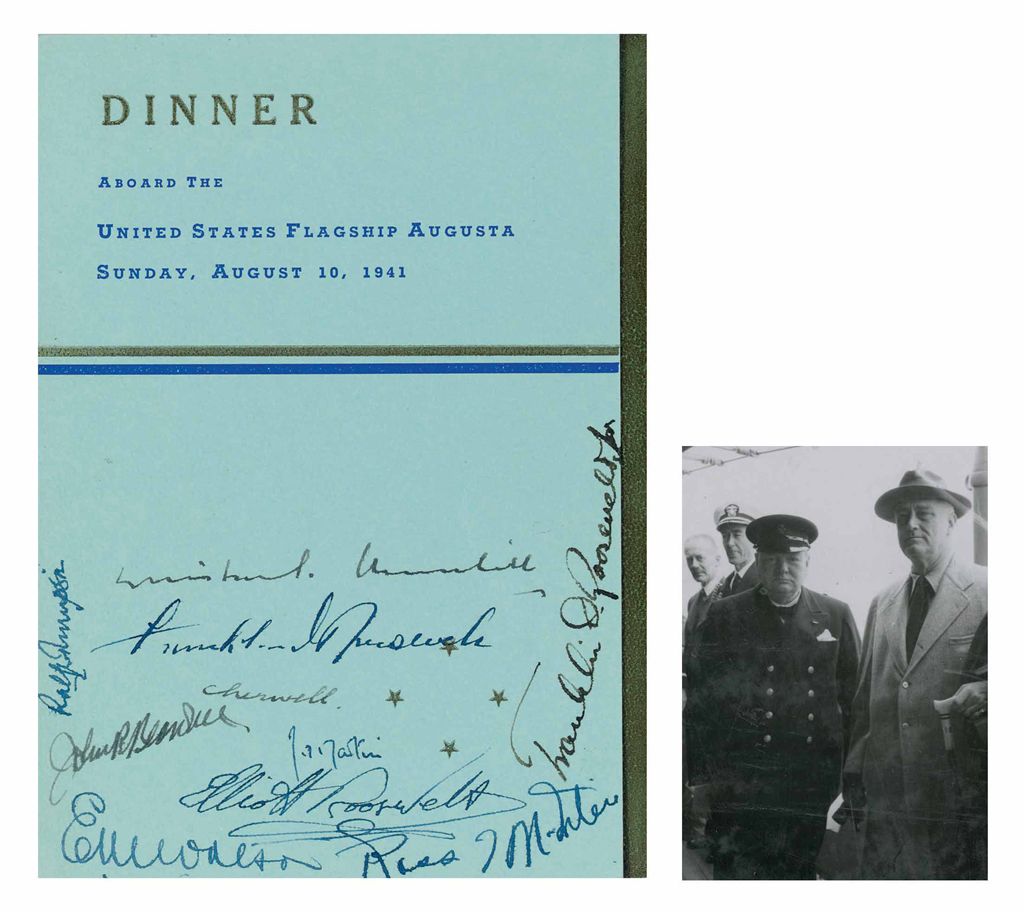 DINNER
ABOARD THE
UNITED STATES FLAGSHIP AUGUSTA
SUNDAY, AUGUST 10, 1941
Franklin D. Roosevelt Jr
Winston S. Churchill
Franklin D Roosevelt
Cherwell.
John R Beardall
J. Martin
Elliott Roosevelt
E M Watson
Ross T McIntire